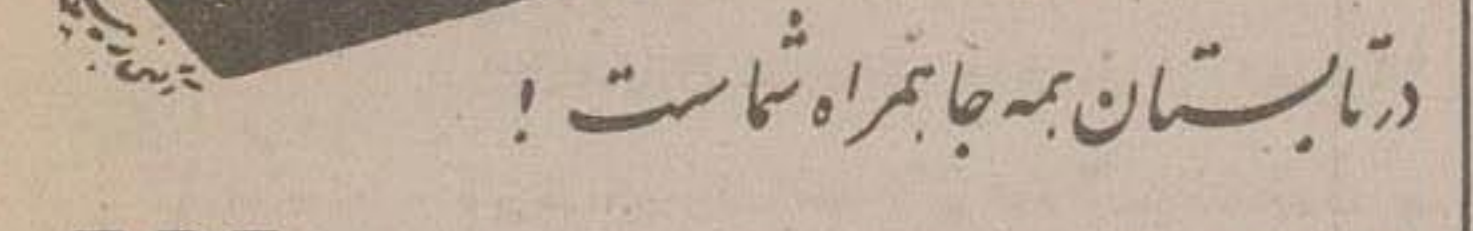 در تابستان همه جا همراه شماست !